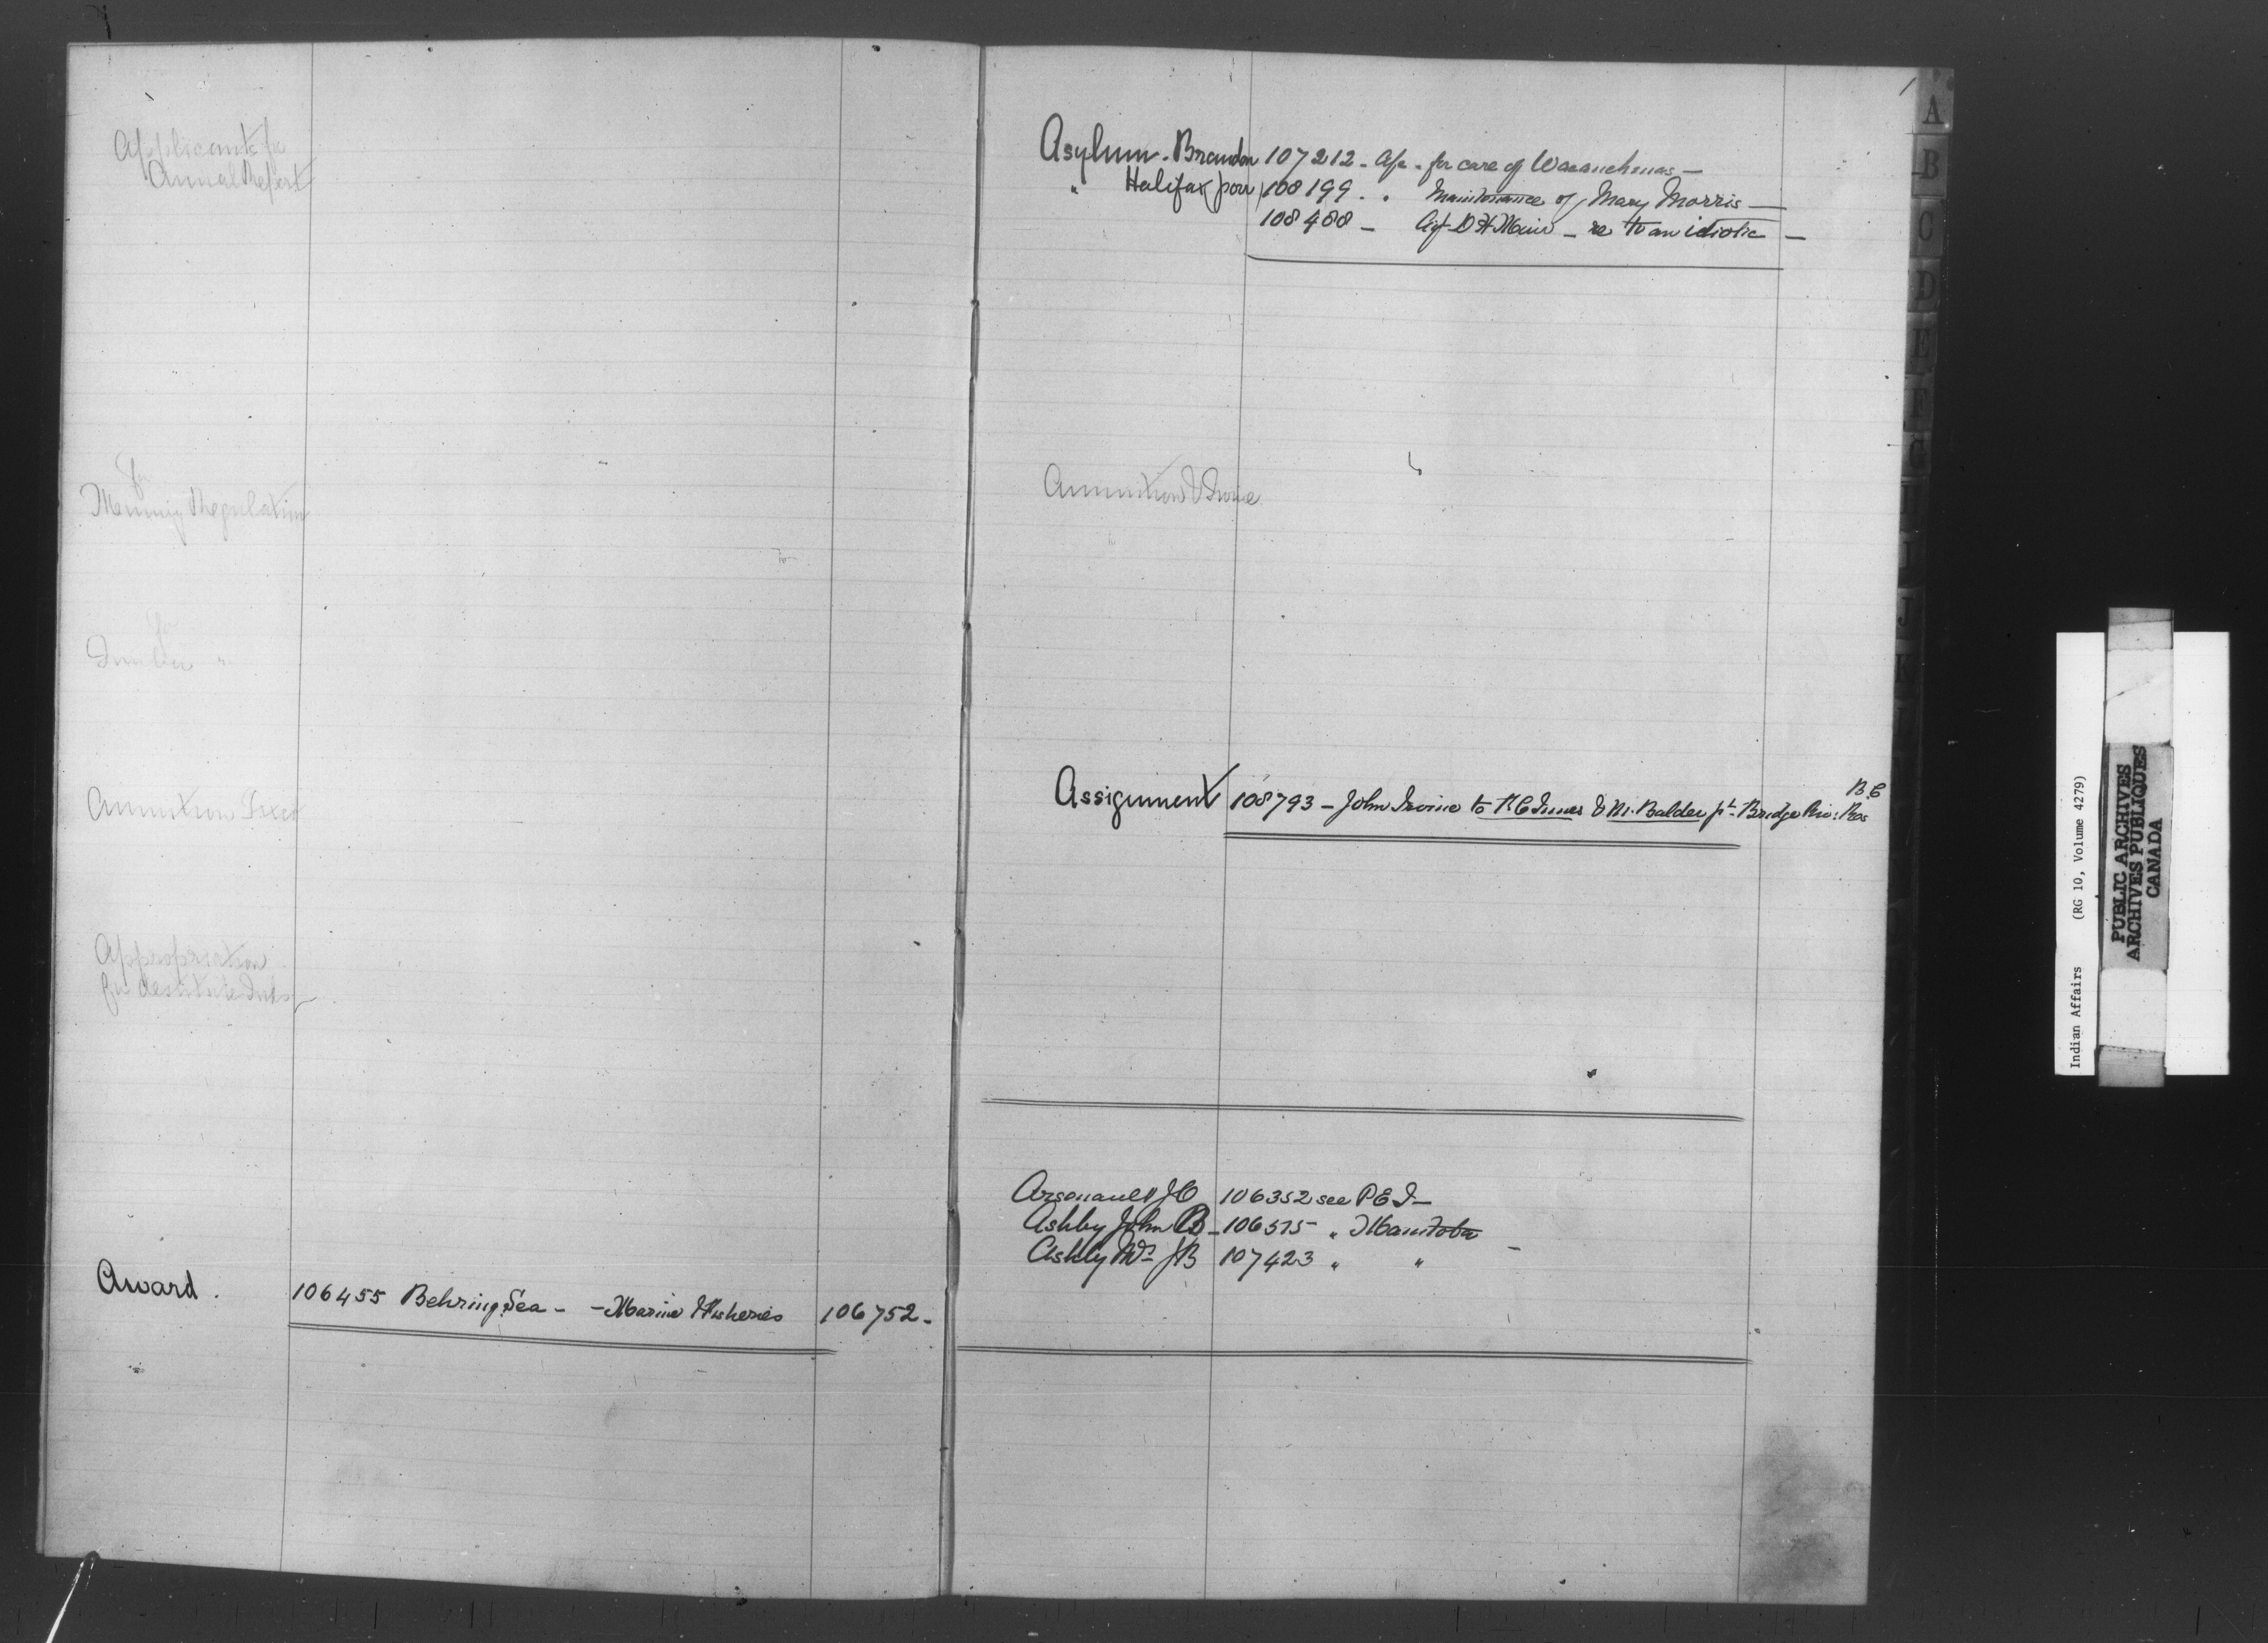 Applicants for
Annual Report
for
Mining Regulation
for
Timber "
Annuities
Appropriation
for destitute Inds
Award . 106455 Behring Sea - - Marine & Fisheries 106752 -
1
Asylum - Brandon 107212 - a/c - for care of
" Halifax poor 108199 . . Maintenance of Mary Morris -
108488 - re to an idiotic -
Assignment 108793 - John Irvine to & pt. Bridge Riv: Res
B.C
Arsenault J O 106352 see P E I -
Ashby John B - 106515 " Manitoba
Ashby J B 107423 " " -
A
B
C
D
E
F
G
I
J
K
Indian Affairs (RG 10, Volume 4279)
PUBLIC ARCHIVES
ARCHIVES PUBLIQUES
CANADA